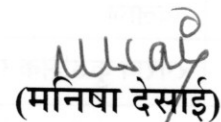 (मनिषा देसाई)